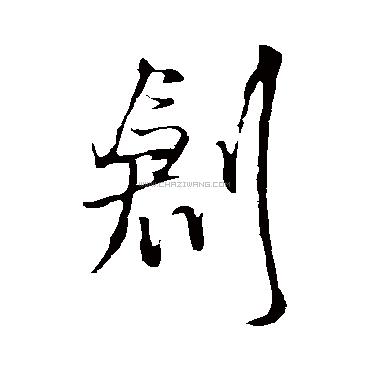 創
WWW.CHAZIWANG.COM